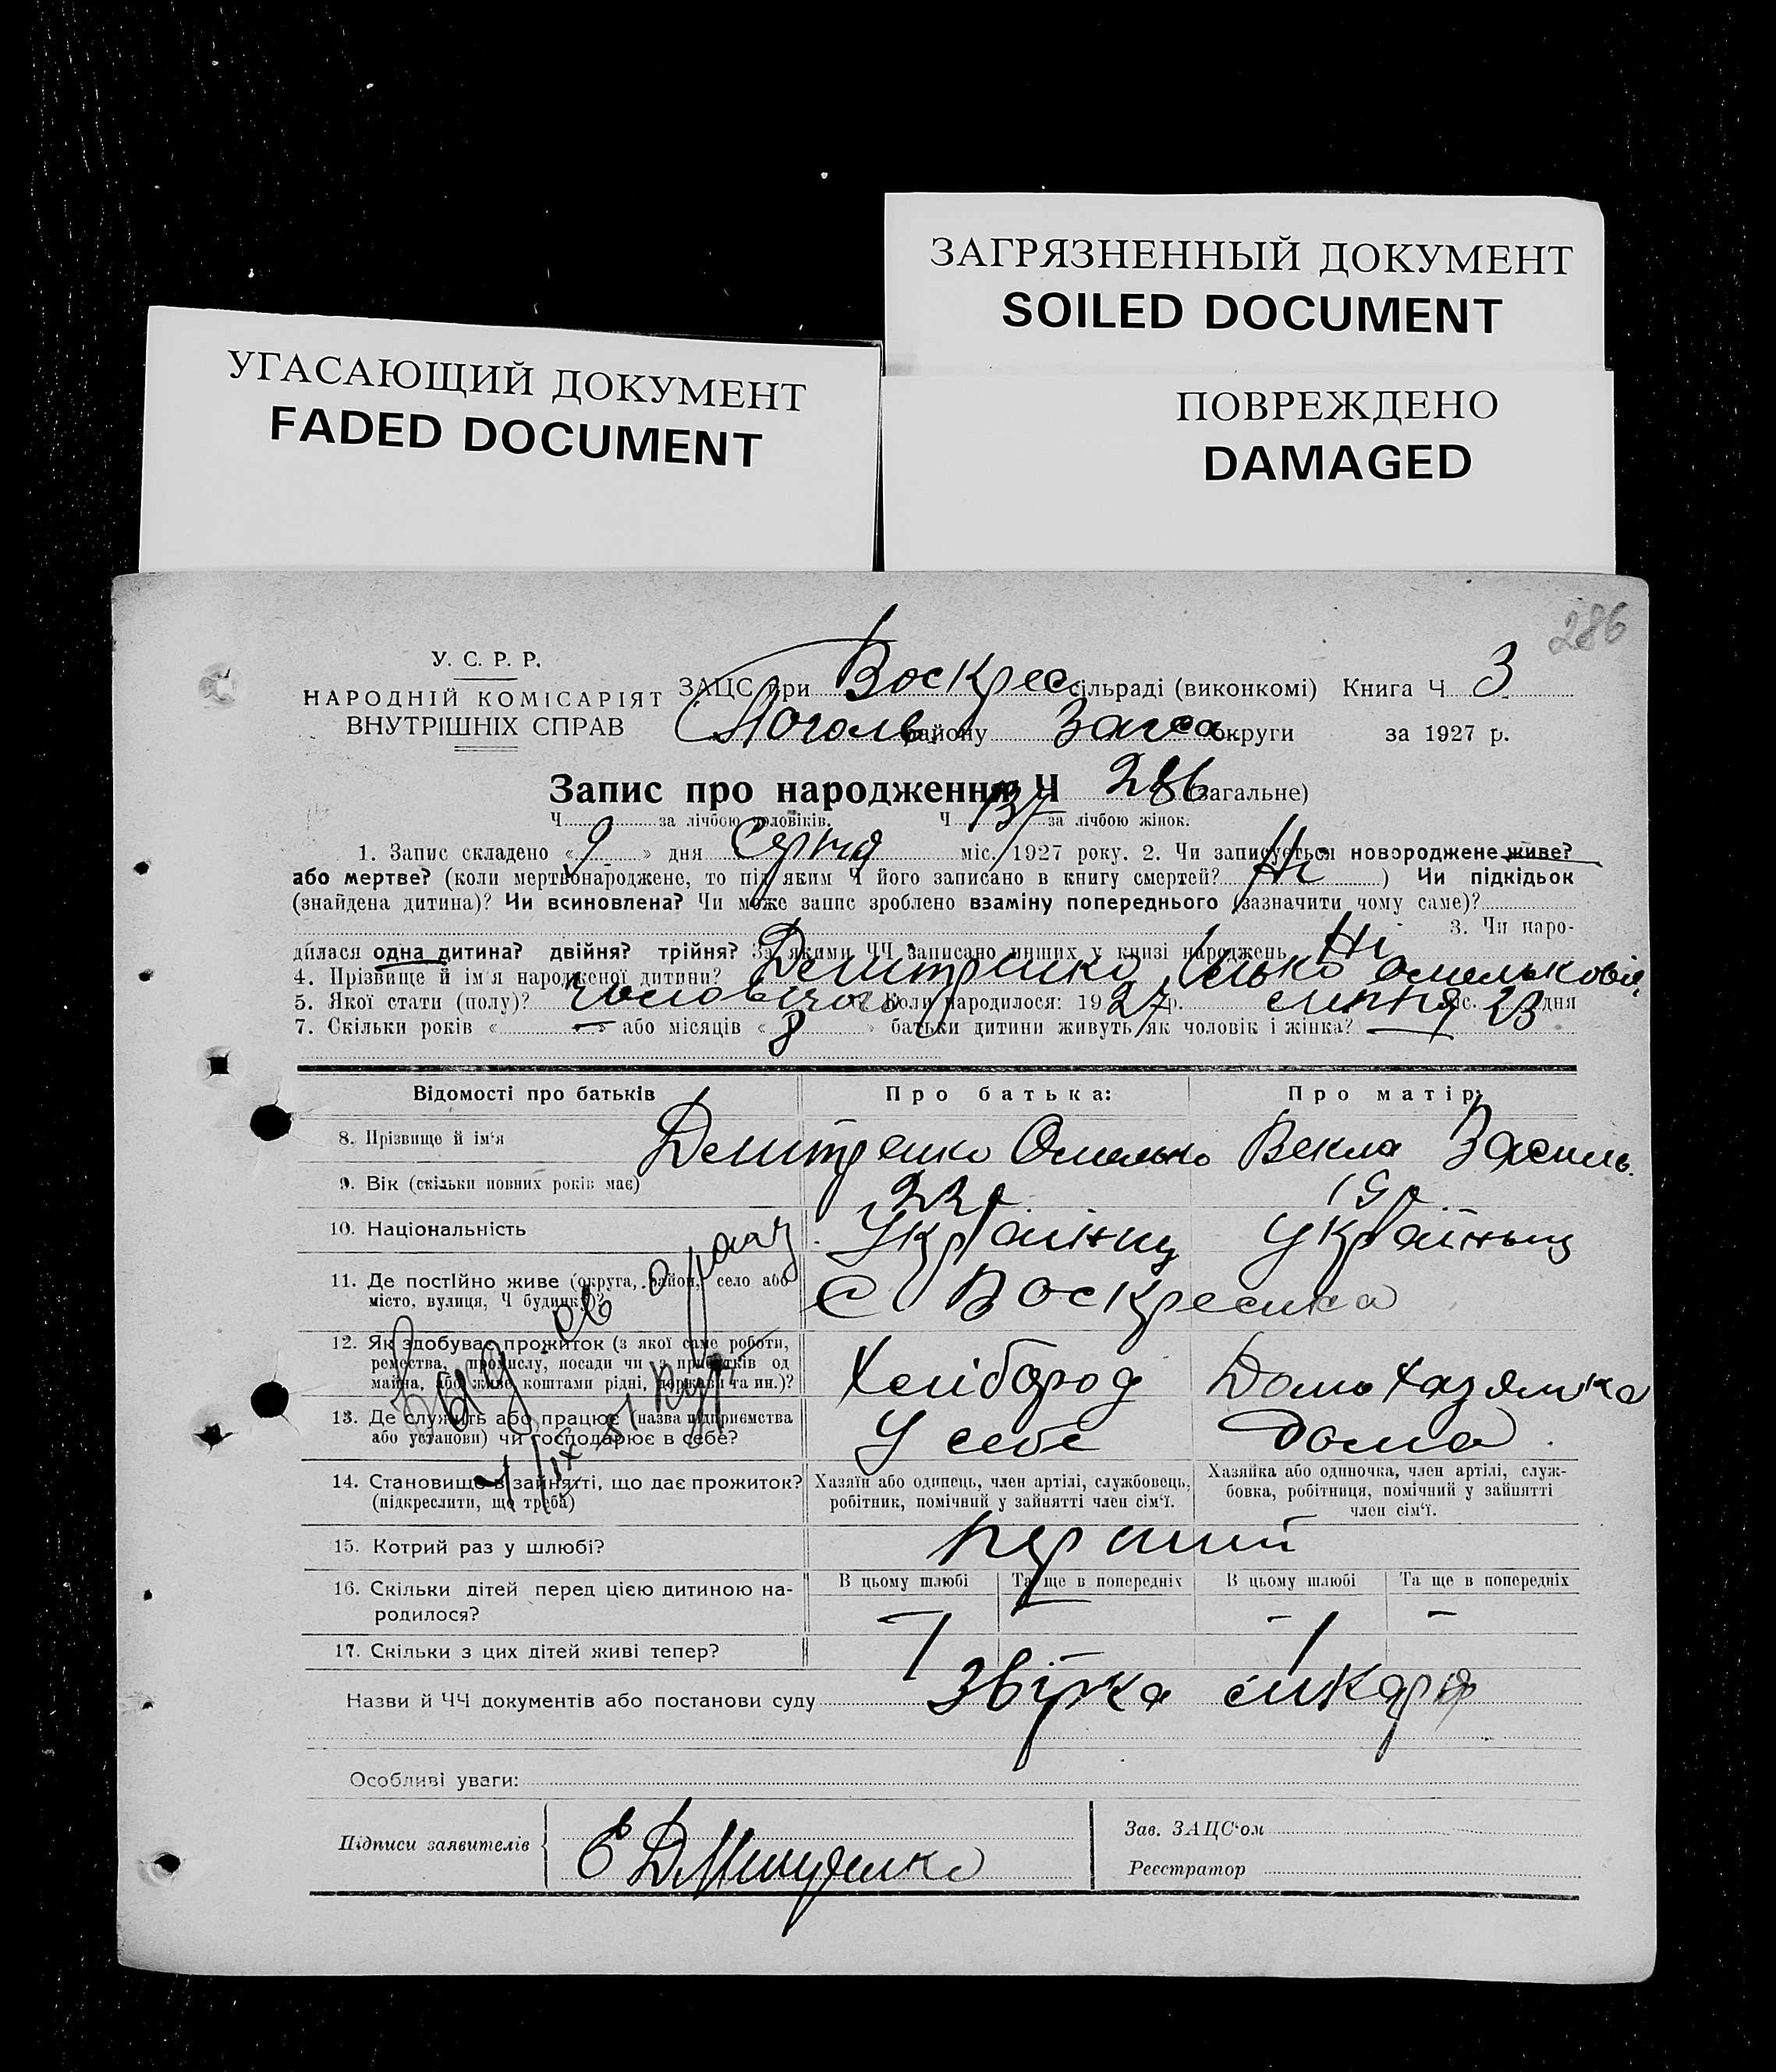 ЗАГРЯЗНЕННЫЙ ДОКУМЕНТ
SOILED DOCUMENT
УГАСАЮЩИЙ ДОКУМЕНТ
FADED DOCUMENT
ПОВРЕЖДЕНО
DAMAGED
286
У. С. Р. Р.
НАРОДНІЙ КОМІСАРІЯТ
ВНУТРІШНІХ СПРАВ
ЗАЦС при Воскрес сільраді (виконкомі) Книга Ч 3
району округи за 1927 р.
Запис про народження Ч 286 (загальне)
Ч за лічбою чоловіків. Ч 137 за лічбою жінок.
1. Запис складено « 9 » дня Серпня міс. 1927 року. 2. Чи записується новороджене живе?
або мертве? (коли мертвонароджене, то під яким Ч його записано в книгу смертей? Ні ) Чи підкідьок
(знайдена дитина)? Чи всиновлена? Чи може запис зроблено взаміну попереднього (зазначити чому саме)?
3. Чи наро-
дилася одна дитина? двійня? трійня? За якими ЧЧ записано инших у книзі народжень Ні
4. Прізвище й ім'я народженої дитини? Демитренко Ілько Омелькович
5. Якої стати (полу)? чоловічого Коли народилося: 1927 р. липня міс. 23 дня
7. Скільки років « — » або місяців « 8 » батьки дитини живуть як чоловік і жінка? —
Відомості про батьків Про батька: Про матір:
8. Прізвище й ім'я Демитренко Омелько Векла Василь.
9. Вік (скільки повних років має) 22 р 19 р
10. Національність Українць Українць
11. Де постійно живе (округа, район, село або
місто, вулиця, Ч будинку)? С Воскресенка
12. Як здобуває прожиток (з якої саме роботи,
ремества, промислу, посади чи з прибутків од
майна, або живе коштами рідні, держави та ин.)? Хлібород Домохазяика
13. Де служить або працює (назва підприємства
або установи) чи господарює в себе? У себе Дома
14. Становище в зайнятті, що дає прожиток?
(підкреслити, що треба)
Хазяїн або одинець, член артілі, службовець,
робітник, помічний у зайнятті член сім'ї.
Хазяйка або одиночка, член артілі, служ-
бовка, робітниця, помічний у зайнятті
член сім'ї.
15. Котрий раз у шлюбі? перший
16. Скільки дітей перед цією дитиною на-
родилося?
В цьому шлюбі Та ще в попередніх В цьому шлюбі Та ще в попередніх
17. Скільки з цих дітей живі тепер?
Назви й ЧЧ документів або постанови суду
Особливі уваги:
Підписи заявителів
Зав. ЗАЦС'ом
Реєстратор